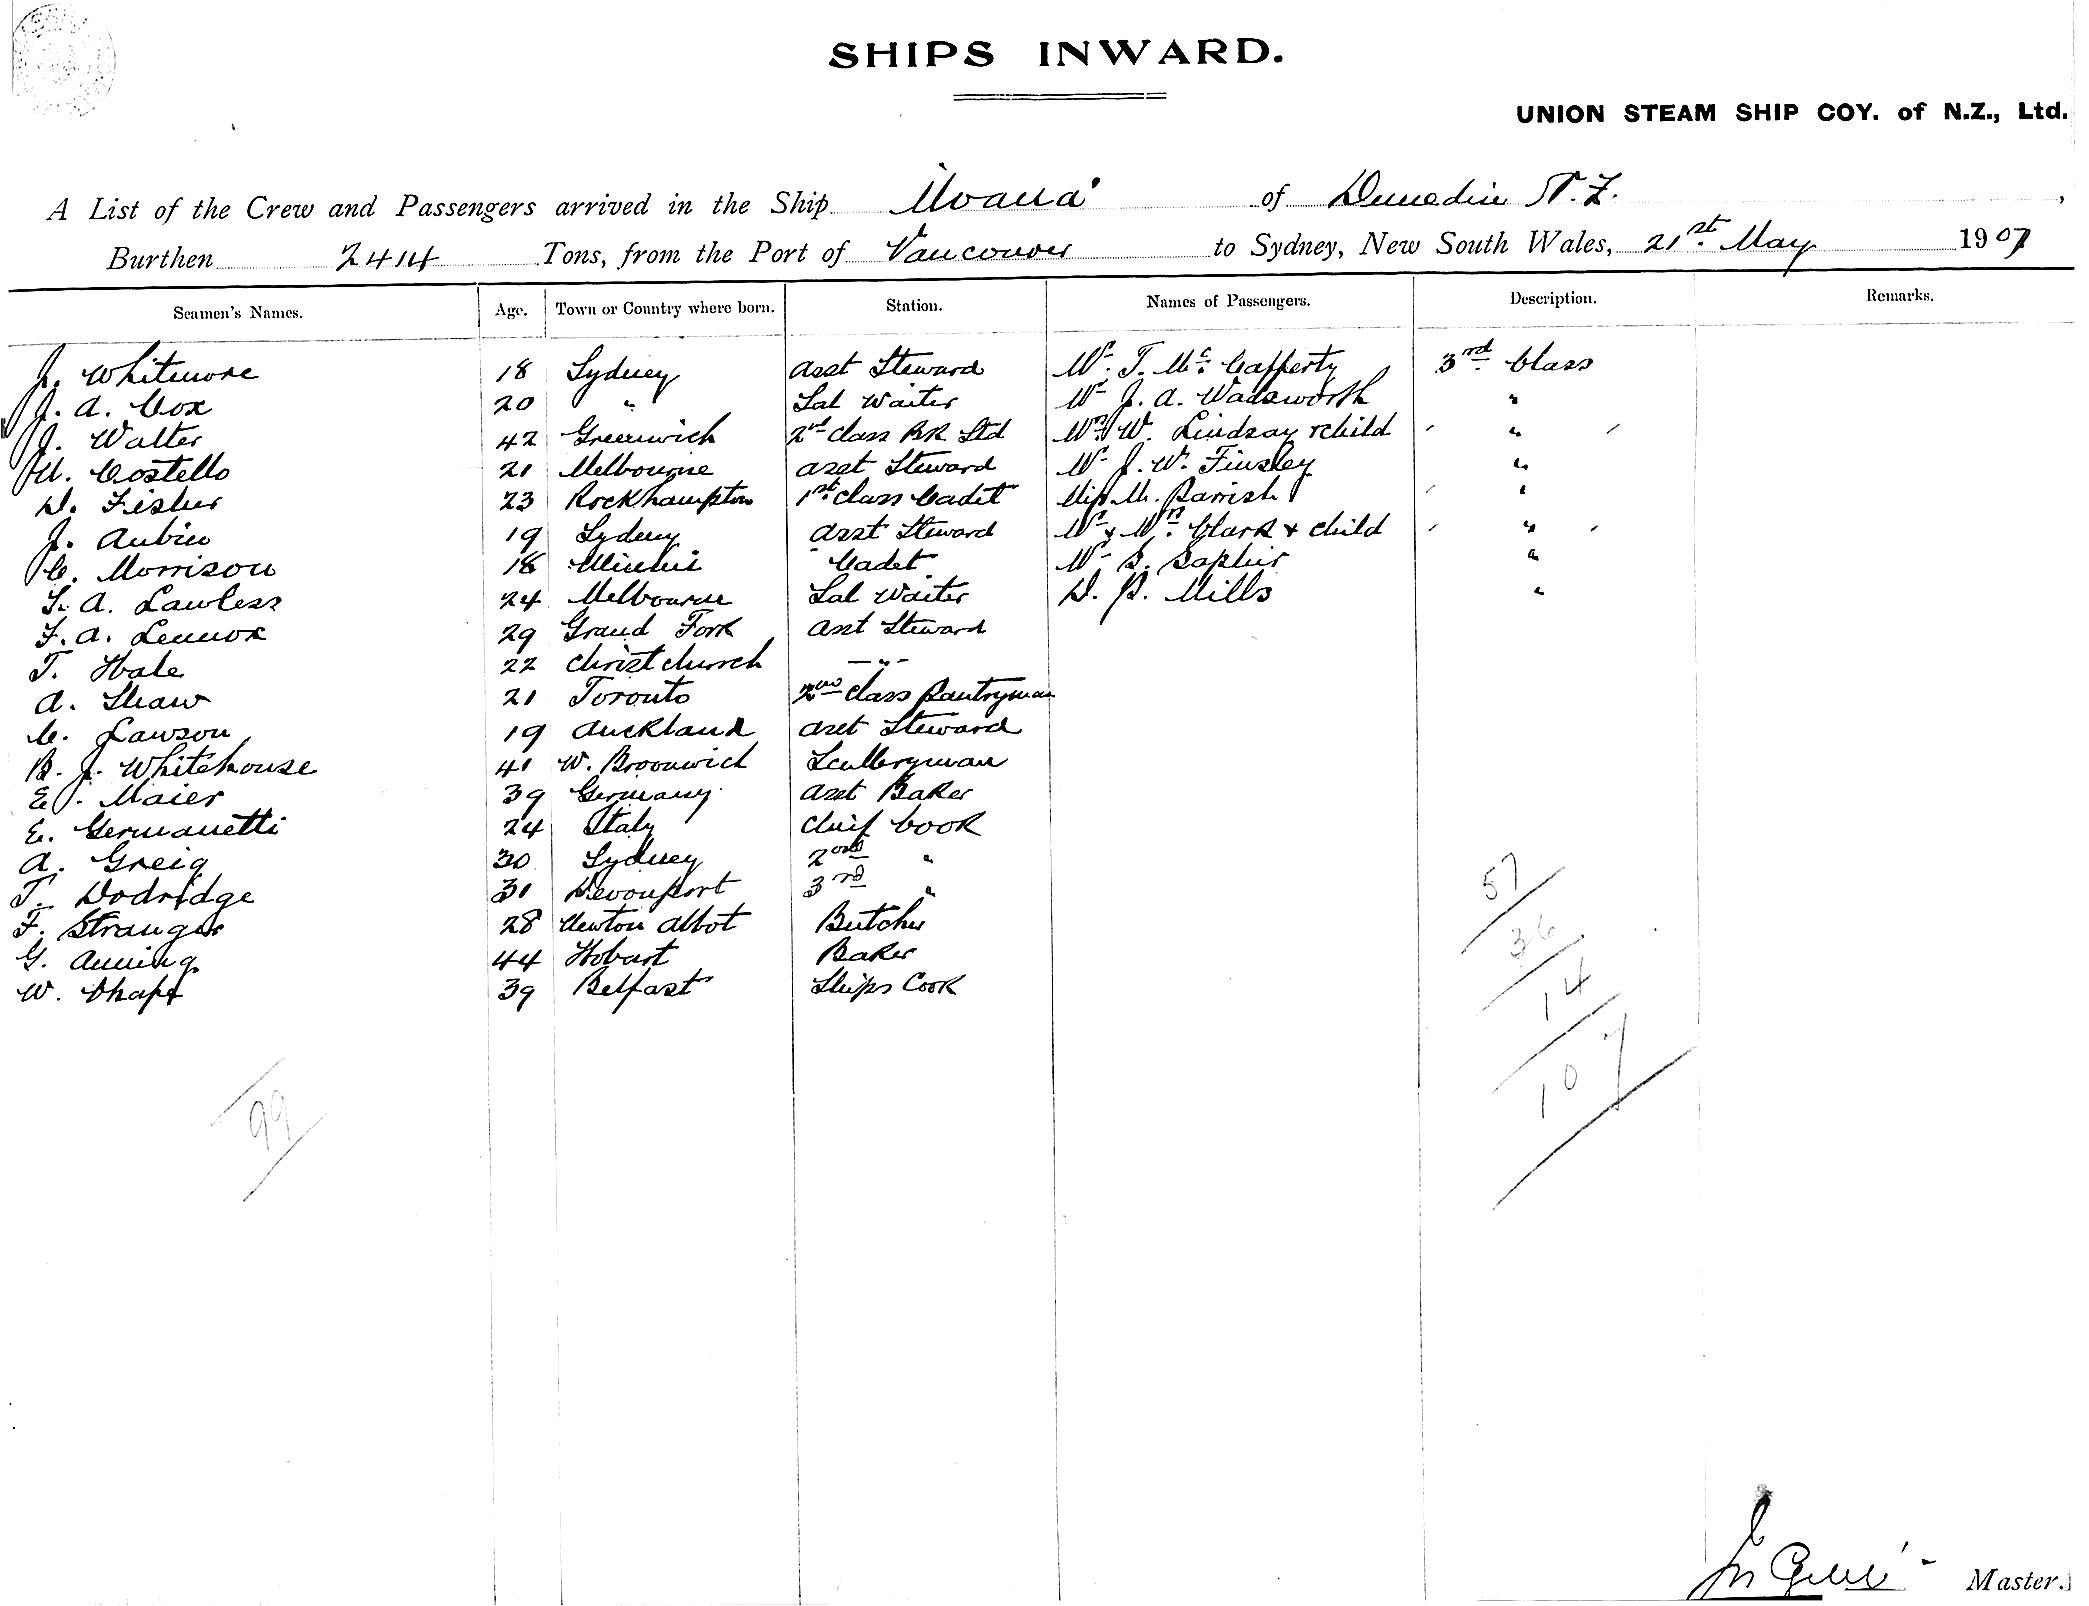 SHIPS INWARD.
UNION STEAM SHIP COY. of N.Z., Ltd.
A List of the Crew and Passengers arrived in the Ship Moana of Dunedin N.Z.,
Burthen 2414 Tons, from the Port of Vancouver to Sydney, New South Wales, 21st May 1907
Seamen's Names. Age. Town or Country where born. Station. Names of Passengers. Description. Remarks.
J. Whitmore 18 Sydney Asst Steward Mr. T. Mc Cafferty 3rd Class
J. A. Cox 20 " Sal Waiter Mr J. A. Wadsworth "
J. Walter 42 Greenwich 2nd Class BR Std W. Lindsay & Child "
M. Costello 21 Melbourne Asst Steward Mr J. W. Finsley "
D. Fisher 23 Rockhampton 1st Class Cadet Miss M. Parrish "
J. Aubin 19 Sydney Asst Steward Mr & Mrs. Clark & Child "
C. Morrison 18 " Cadet Mr S. Saphir "
F. A. Lawless 24 Melbourne Sal Waiter D. B. Mills "
F. A. Lennox 29 Grand Fork Asst Steward
T. Hale 22 Christchurch - " -
A. Shaw 21 Toronto 2nd Class Pantryman
C. Lawson 19 Auckland Asst Steward
B. J. Whitehouse 41 W. Broomwich Sculleryman
E. J. Maier 39 Germany Asst Baker
E. Germanetti 24 Italy Chief Cook
A. Greig 30 Sydney 2nd "
T. Dodridge 31 Devonport 3rd "
F. Stranger 28 Newton Abbot Butcher
G. Anning 44 Hobart Baker
W. Chapt 39 Belfast Ships Cook
57
36
14
107
99
Master.